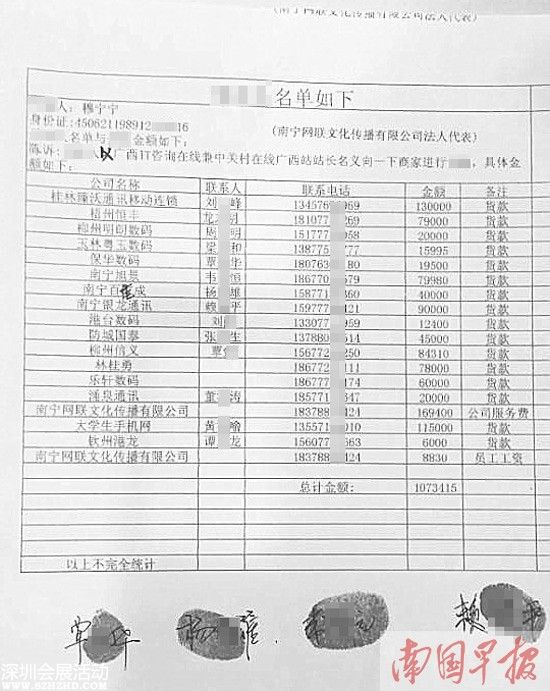 (南宁网联文化传播有限公司法人代表)
名单如下
人：穆宁宁
身份证:45062119891216
(南宁网联文化传播有限公司法人代表)
名单与 金额如下:
陈诉: 以广西IT咨询在线兼中关村在线广西站站长名义向一下商家进行 , 具体金
额如下:
公司名称 联系人 联系电话 金额 备注
桂林臻沃通讯移动连锁 刘 峰 134576 969 130000 货款
梧州恒丰 龙 181077 268 79000 货款
柳州明朗数码 周 明 151777 058 20000 货款
玉林粤宝数码 梁 和 138775 777 15995 货款
保华数码 覃 华 180763 180 19500 货款
南宁旭景 韦 恒 186770 579 79980 货款
南宁百 成 杨 雄 158771 360 40000 货款
南宁银龙通讯 赖 平 159777 421 90000 货款
港台数码 刘 133077 959 12400 货款
防城国泰 张 生 137880 514 45000 货款
柳州信义 覃 156772 250 84310 货款
林桂勇 186772 111 78000 货款
乐轩数码 186777 174 60000 货款
涌泉通讯 董 涛 185771 347 20000 货款
南宁网联文化传播有限公司 183788 424 169400 公司服务费
大学生手机网 黄 喻 135571 010 115000 货款
钦州港龙 谭 龙 156077 663 6000 货款
南宁网联文化传播有限公司 183788 424 8830 员工工资
总计金额: 1073415
以上不完全统计
覃 华 杨 雄 赖
南国早报
深圳会展活动
WWW.SZHZHD.COM